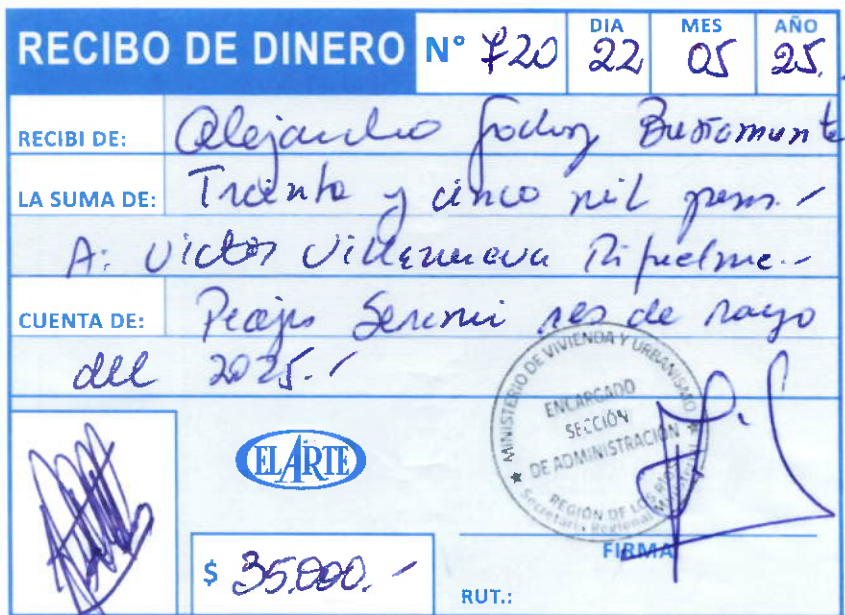 RECIBO DE DINERO N° 720 DIA 22 MES 05 AÑO 25.
RECIBI DE: Alejandro Godoy Bustamante
LA SUMA DE: Treinta y cinco mil pesos.-
A: Victor Villanueva Riquelme.-
CUENTA DE: Peajes Seremi mes de mayo
del 2025.-
MINISTERIO DE VIVIENDA Y URBANISMO
ENCARGADO
SECCIÓN
DE ADMINISTRACIÓN
REGIÓN DE LOS
Secretaría Regional
EL ARTE
$ 35.000.-
FIRMA
RUT.: